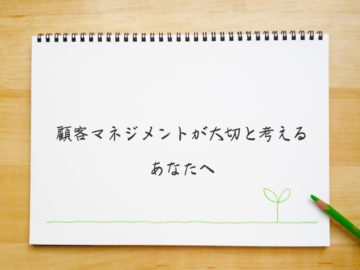 顧客マネジメントが大切と考える
あなたへ